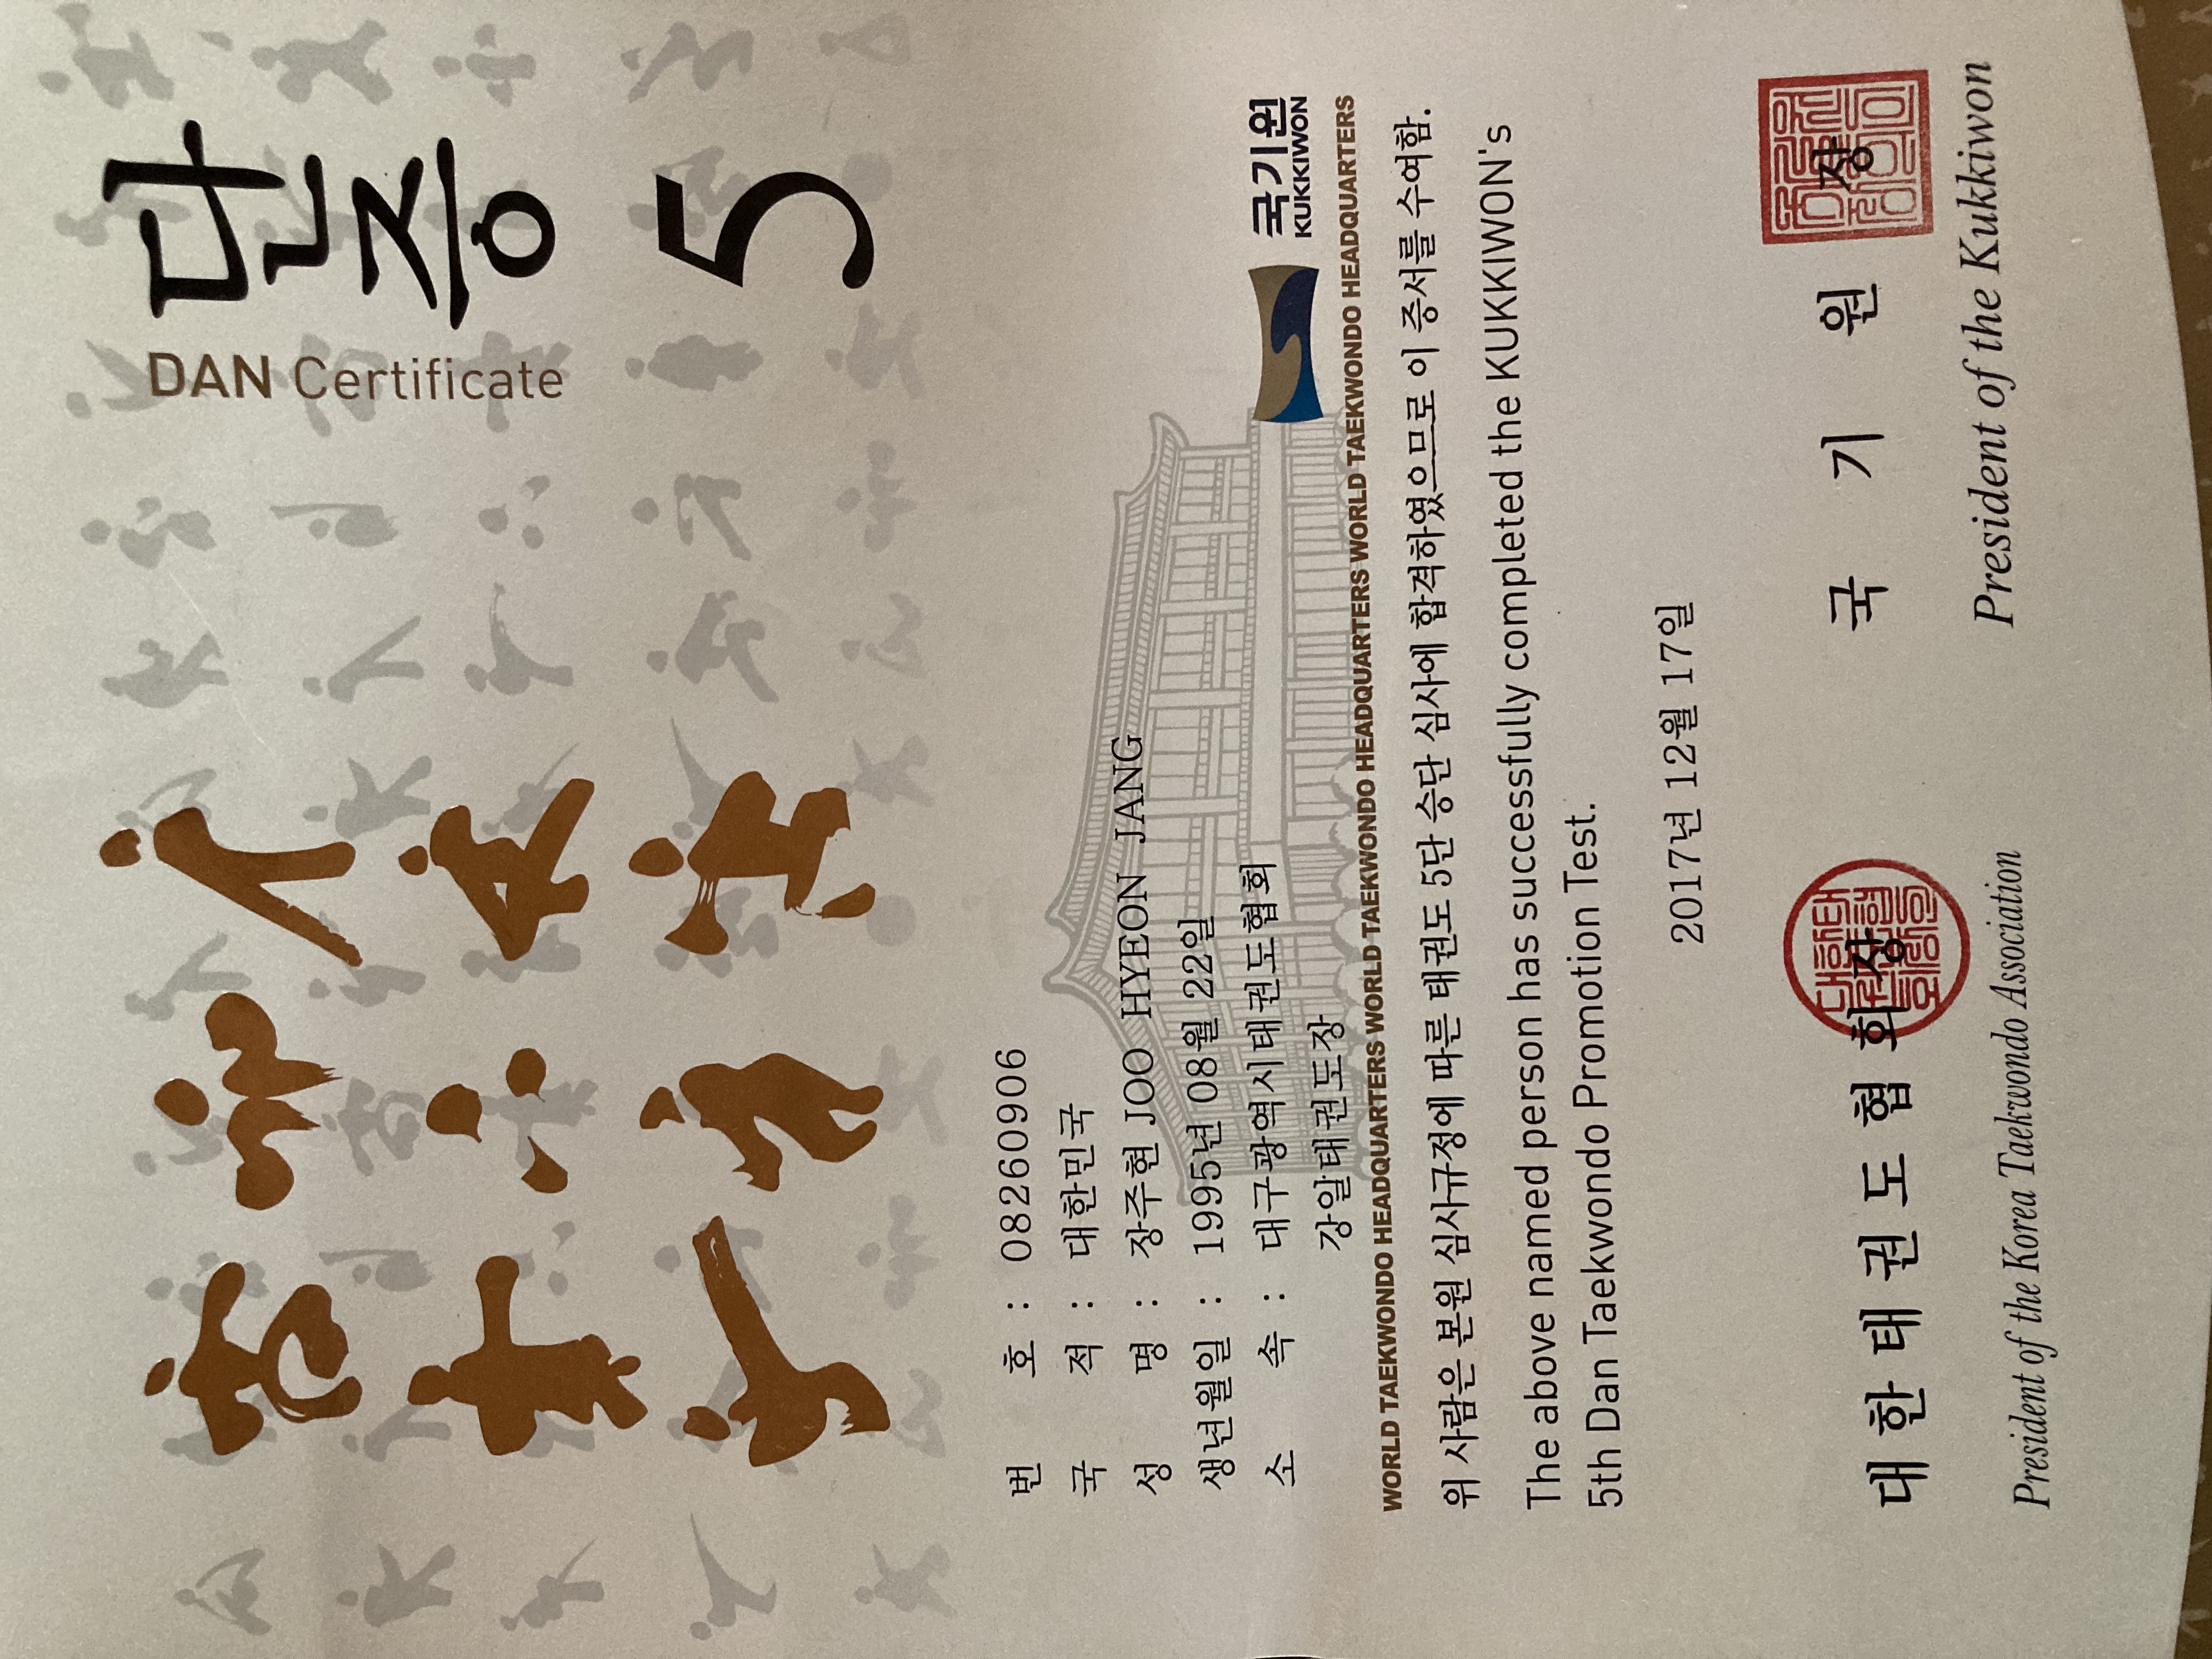 단증
DAN Certificate
5
번 호 : 08260906
국 적 : 대한민국
성 명 : 장주현 JOO HYEON JANG
생년월일 : 1995년 08월 22일
소 속 : 대구광역시태권도협회
강일태권도장
국기원
KUKKIWON
WORLD TAEKWONDO HEADQUARTERS WORLD TAEKWONDO HEADQUARTERS WORLD TAEKWONDO HEADQUARTERS WORLD TAEKWONDO HEADQUARTERS WORLD TAEKWONDO HEADQUARTERS
위 사람은 본원 심사규정에 따른 태권도 5단 승단 심사에 합격하였으므로 이 증서를 수여함.
The above named person has successfully completed the KUKKIWON's
5th Dan Taekwondo Promotion Test.
2017년 12월 17일
대한태권도협회장
President of the Korea Taekwondo Association
국 기 원 장
President of the Kukkiwon